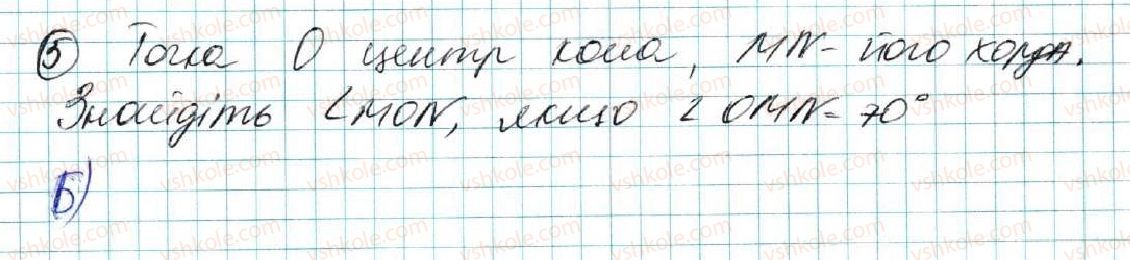 5 Точка О центр кола, MN- його хорда.
Знайдіть <MON, якщо ∠ OMN= 70°
Б)